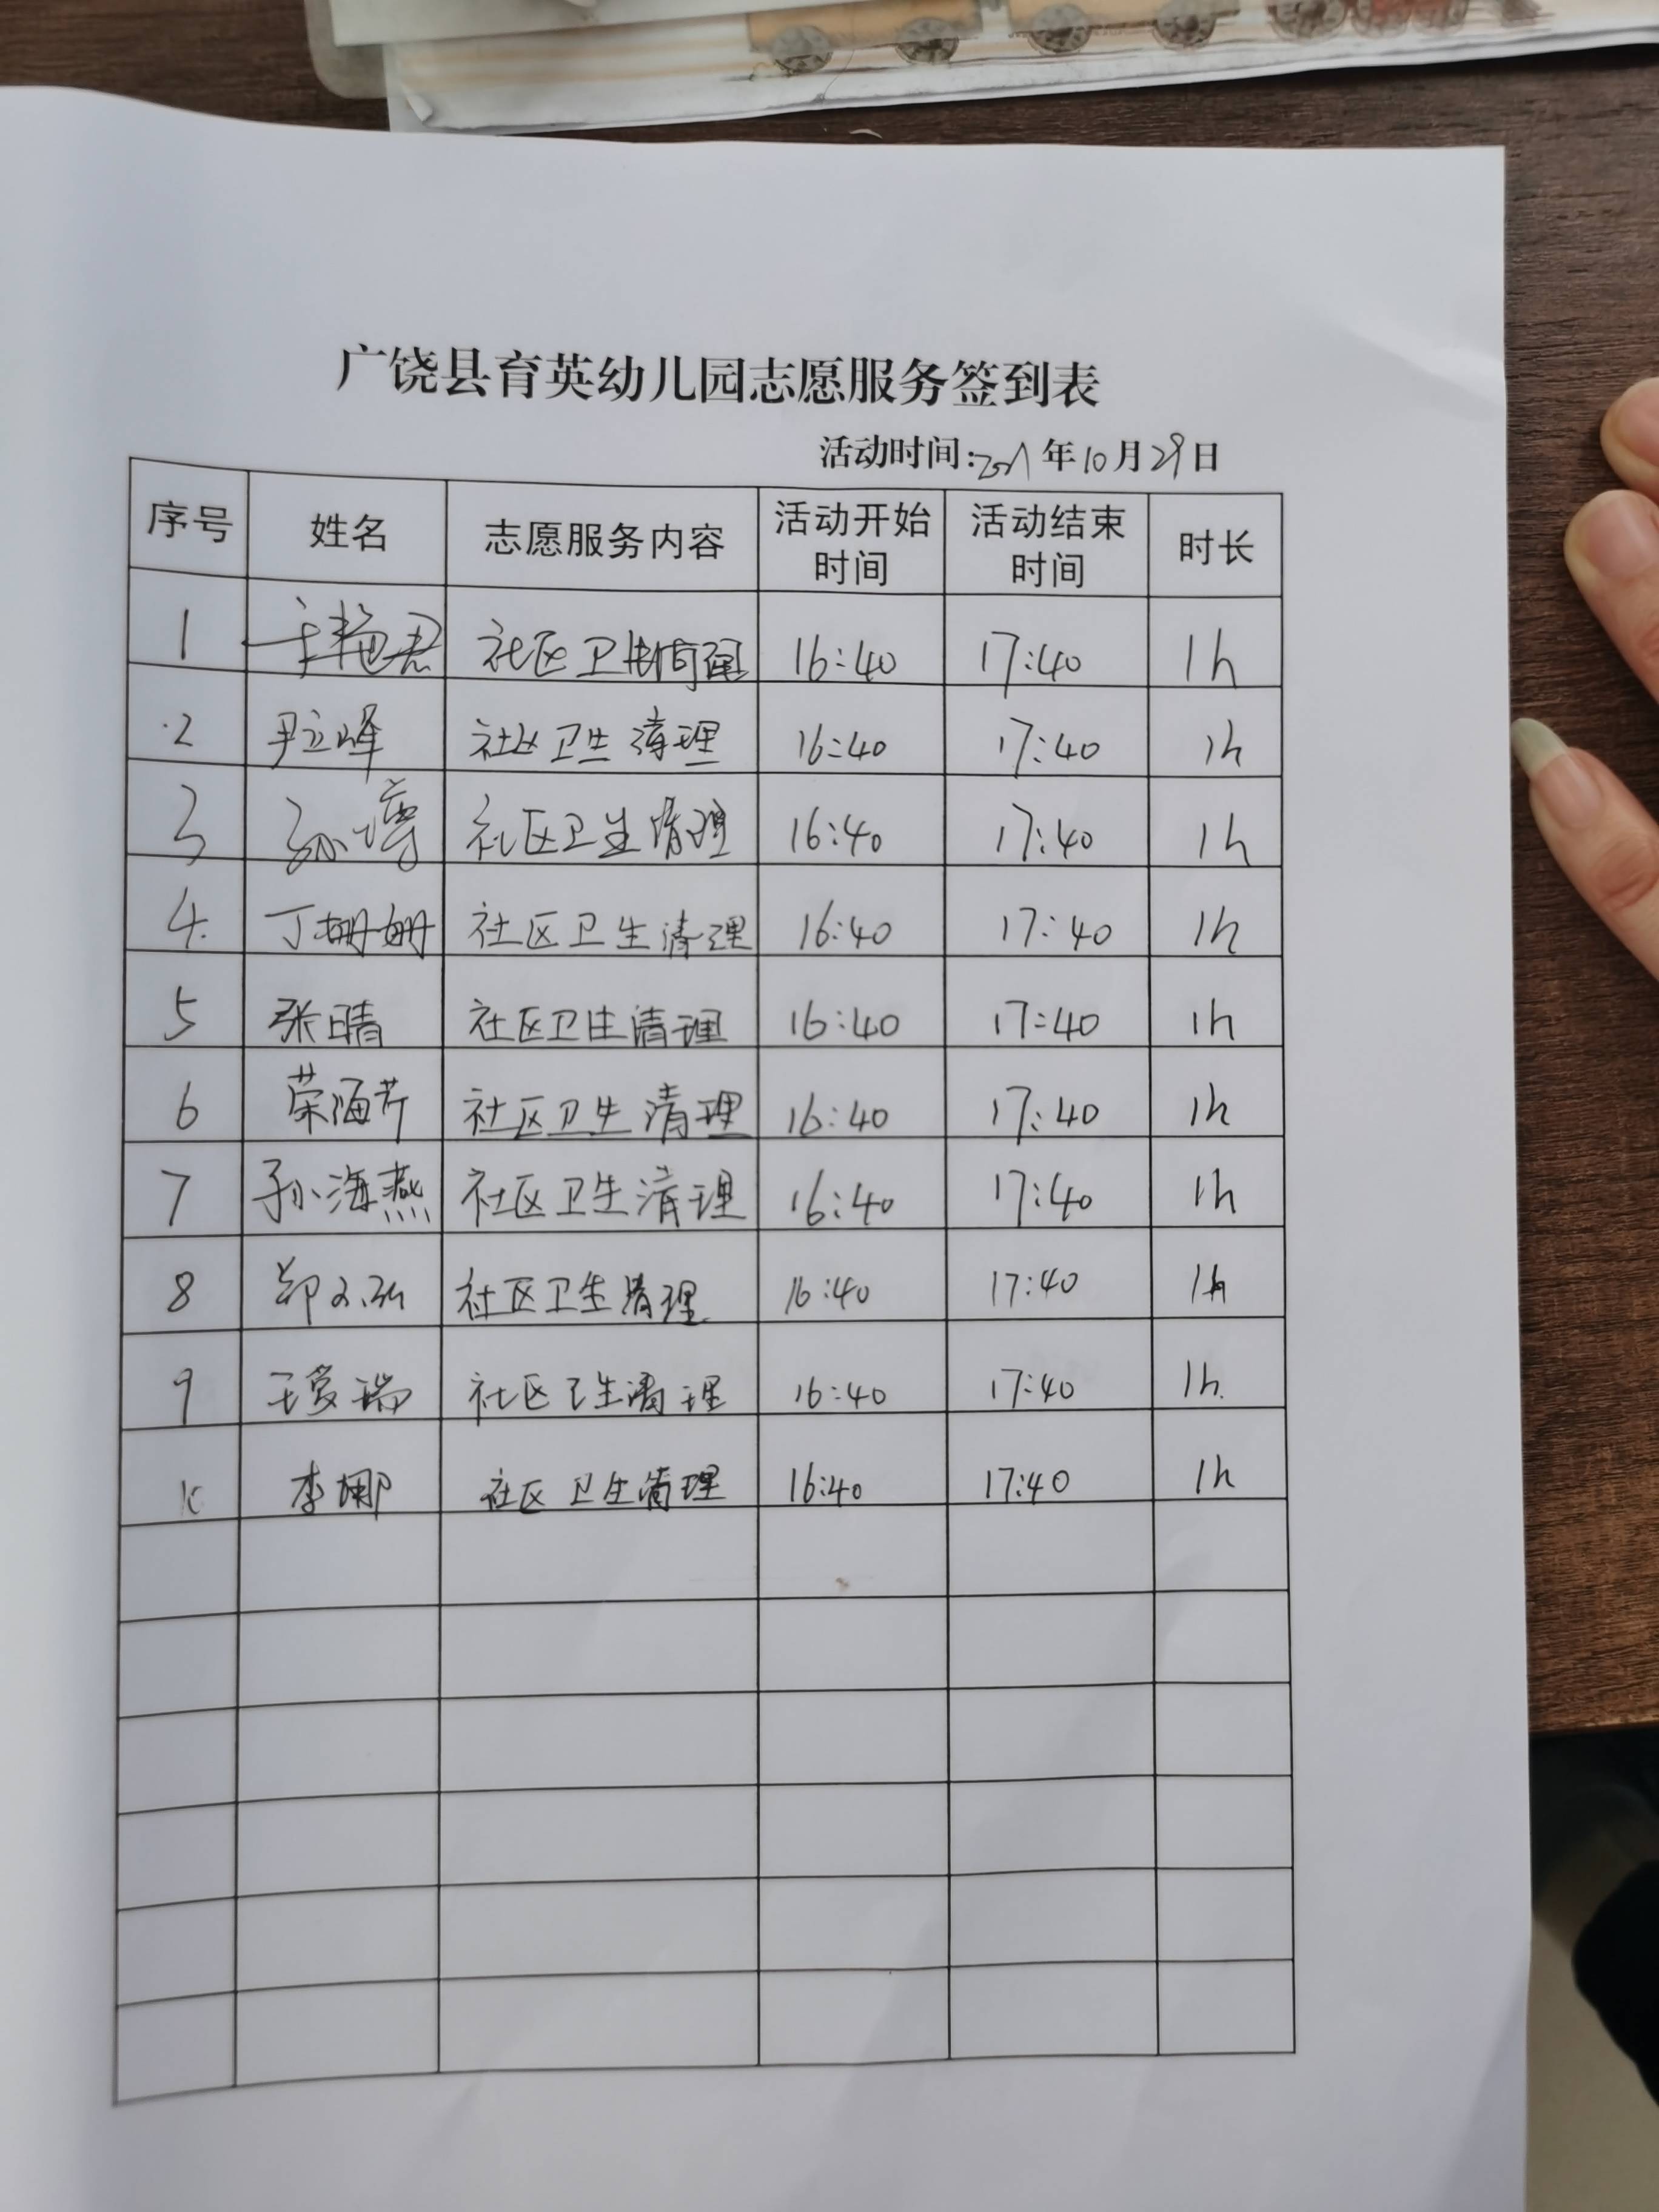 广饶县育英幼儿园志愿服务签到表
活动时间: 年10月29日
序号 姓名 志愿服务内容 活动开始时间 活动结束时间 时长
1 社区卫生清理 16:40 17:40 1h
2 尹立峰 社区卫生清理 16:40 17:40 1h
3 孙 社区卫生清理 16:40 17:40 1h
4. 丁姗姗 社区卫生清理 16:40 17:40 1h
5 张晴 社区卫生清理 16:40 17:40 1h
6 荣海芹 社区卫生清理 16:40 17:40 1h
7 孙海燕 社区卫生清理 16:40 17:40 1h
8 郑文弘 社区卫生清理 16:40 17:40 1h
9 王爱瑞 社区卫生清理 16:40 17:40 1h.
10 李娜 社区卫生清理 16:40 17:40 1h